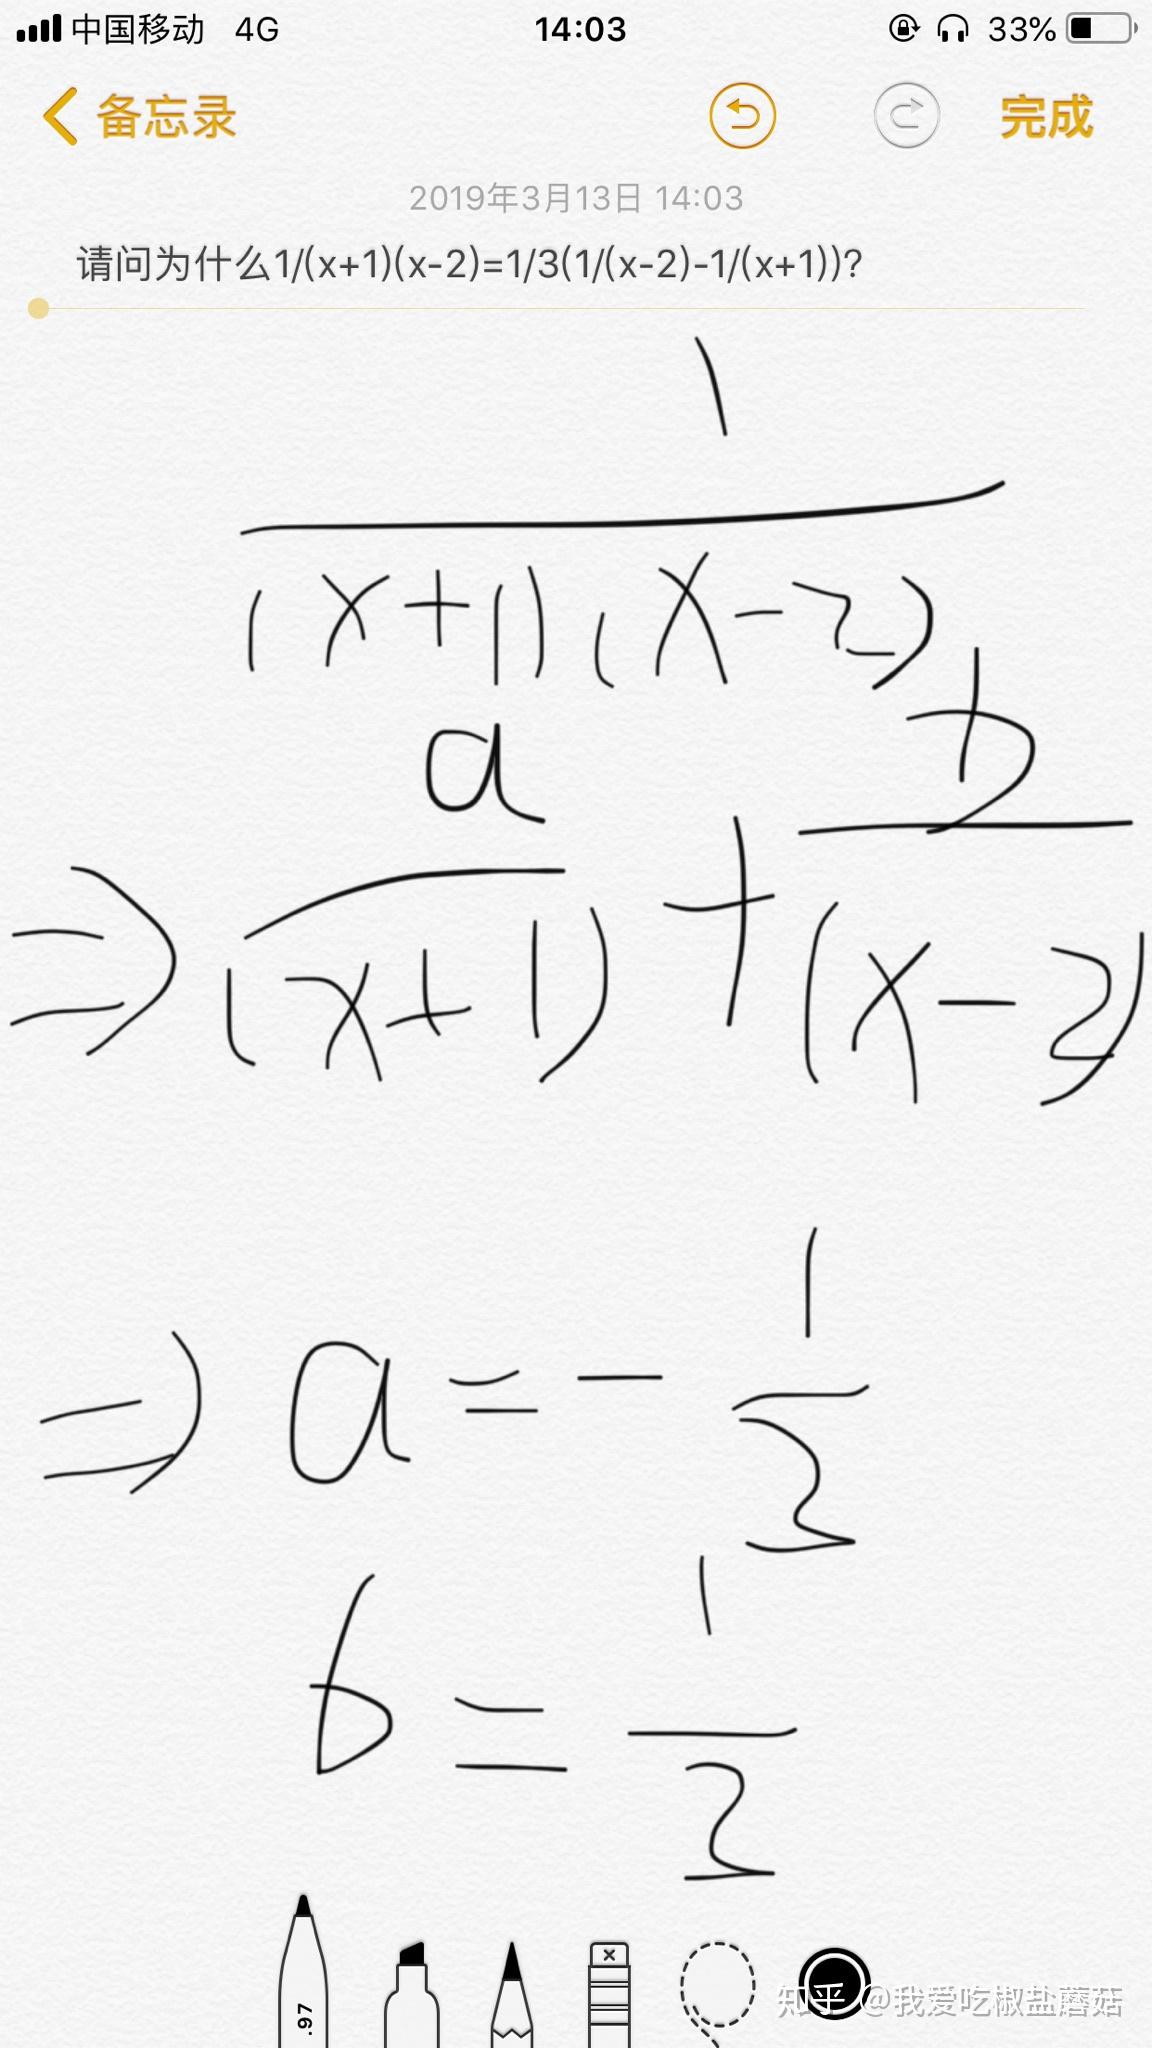 中国移动 4G 14:03 33%
备忘录 完成
2019年3月13日 14:03
请问为什么1/(x+1)(x-2)=1/3(1/(x-2)-1/(x+1))?
1
(x+1)(x-2)
a b
⇒ (x+1) + (x-2)
1
⇒ a = -
2
1
b =
2
.97
知乎 @我爱吃椒盐蘑菇